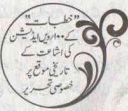 "خطبات"
کے ۱۰۰ ویں ایڈیشن
کی اشاعت کے
تاریخی موقع پر
خصوصی تحریر